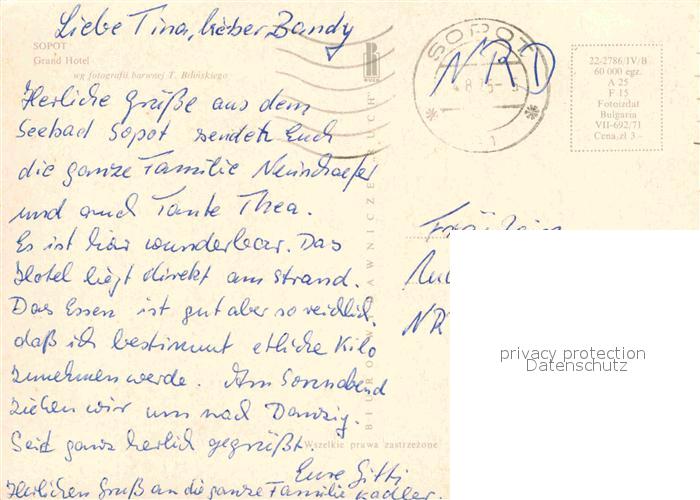 Liebe Tina, lieber Bandy
SOPOT
Grand Hotel
wg fotografii barwnej T. Bilińskiego
Herliche Grüße aus dem
Seebad Sopot sendet Euch
die ganze Familie
und auch Tante Thea.
Es ist hier wunderbar. Das
Hotel liegt direkt am Strand.
Das Essen ist gut aber so reichlich,
daß ich bestimmt etliche Kilo
zunehmen werde. Am Sonnabend
ziehen wir um nach Danzig.
Seid ganz herlich gegrüßt.
Eure Gitti
Herlichen Gruß an die ganze Familie Kadler.
RUCH
BIURO WYDAWNICZE RUCH
Wszelkie prawa zastrzeżone
SOPOT
NRD
1
22-2786/IV/B
60 000 egz.
A 25
F 15
Fotoizdat
Bulgaria
VII-692/71
Cena zł 3.–
Fräulein
NR
privacy protection
Datenschutz